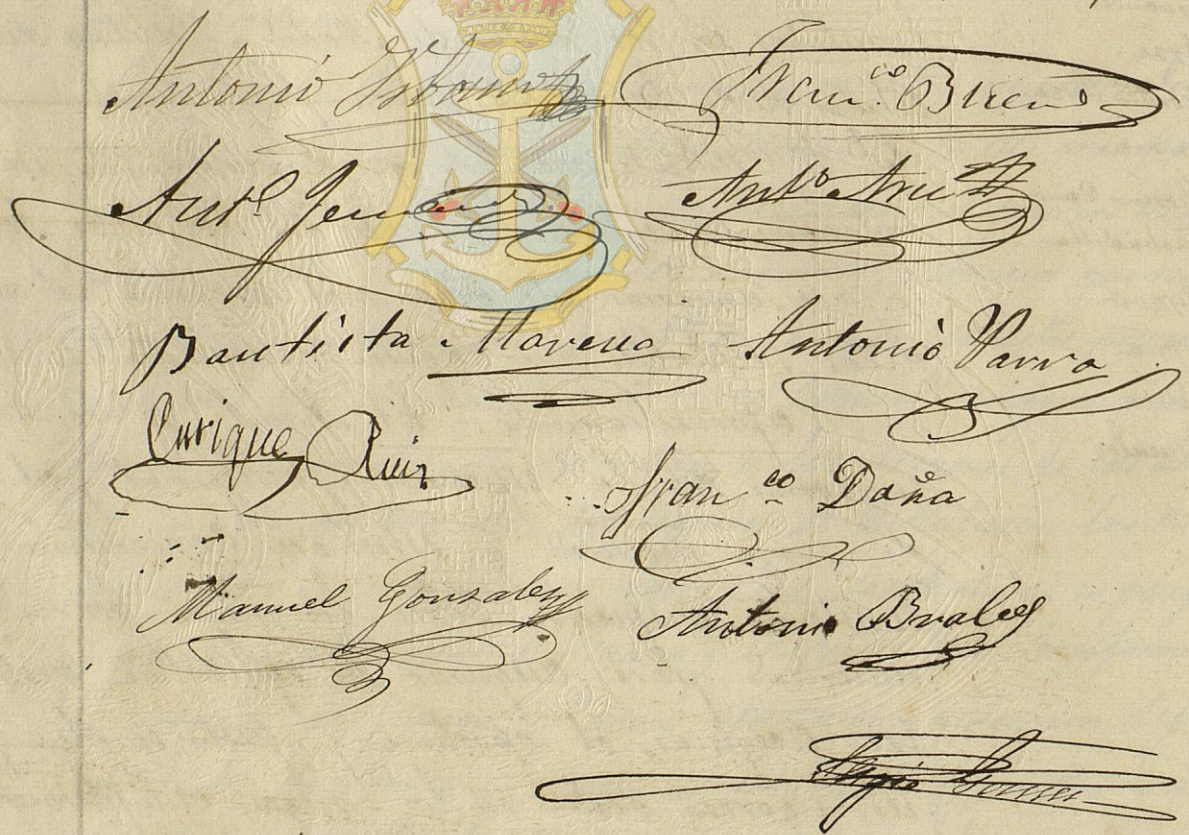 Antonio
Fran.co Bueno
Ant.o
Ant.o
Bautista Moreno Antonio Parra
Enrique Ruiz
Fran.co Doña
Manuel Gonzalez
Antonio Bruales